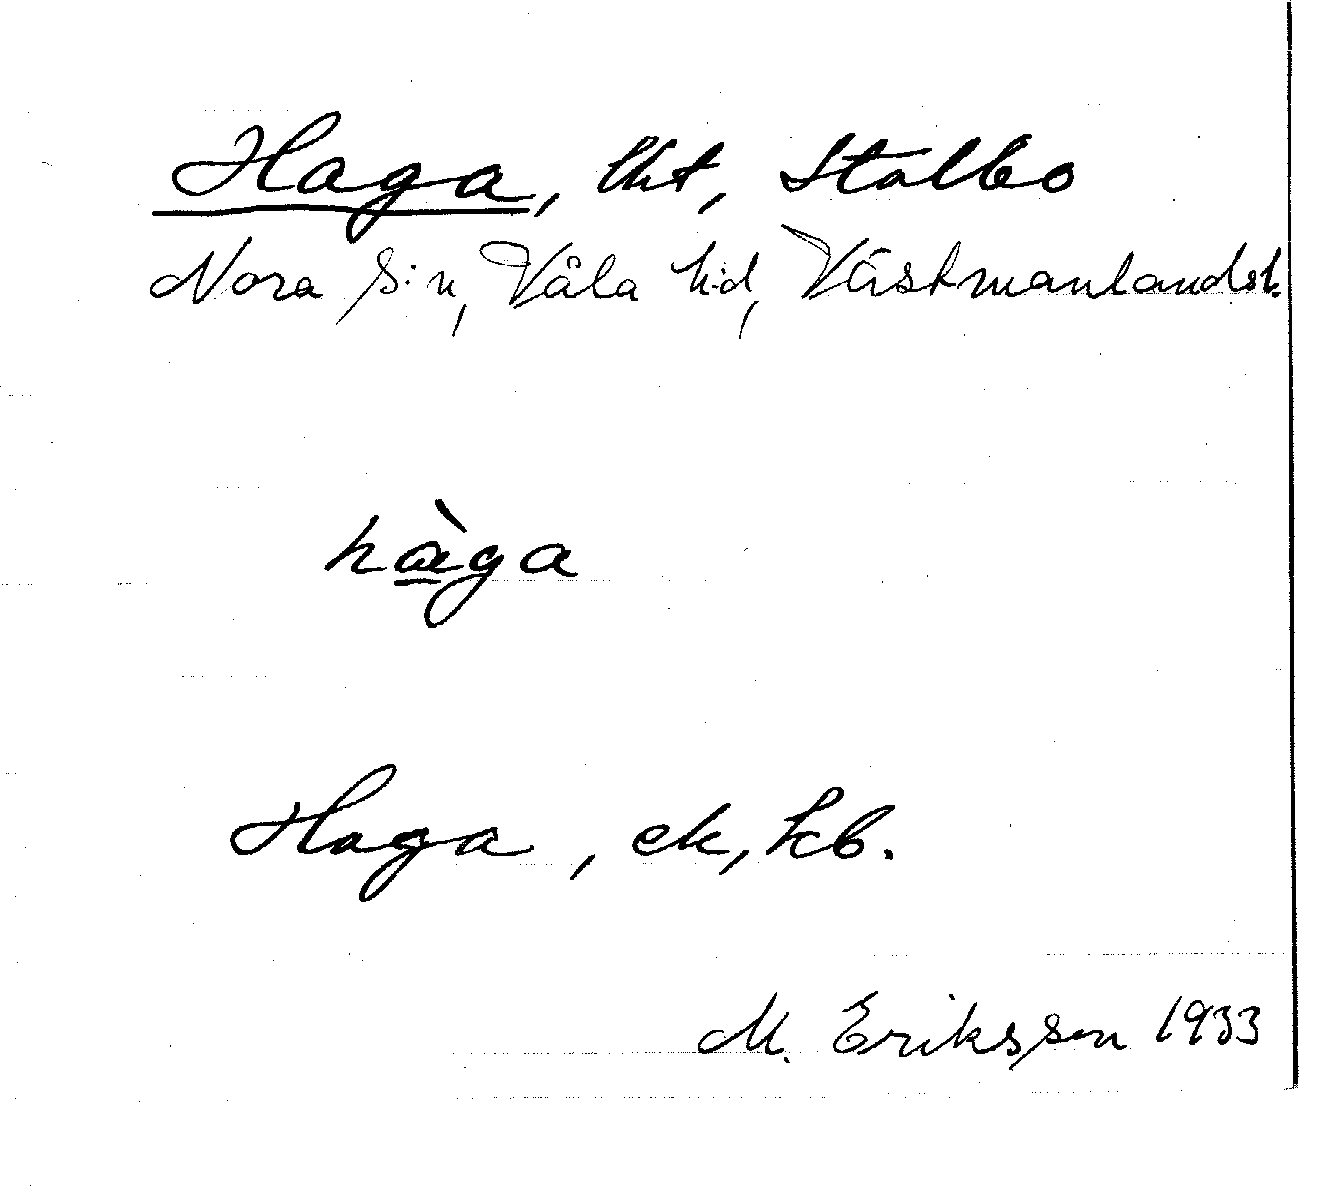 Haga, lht, Stalbo
Nora s:n, Våla h:d, Västmanlandsl.
hàga
Haga, ek, kb.
M. Eriksson 1933